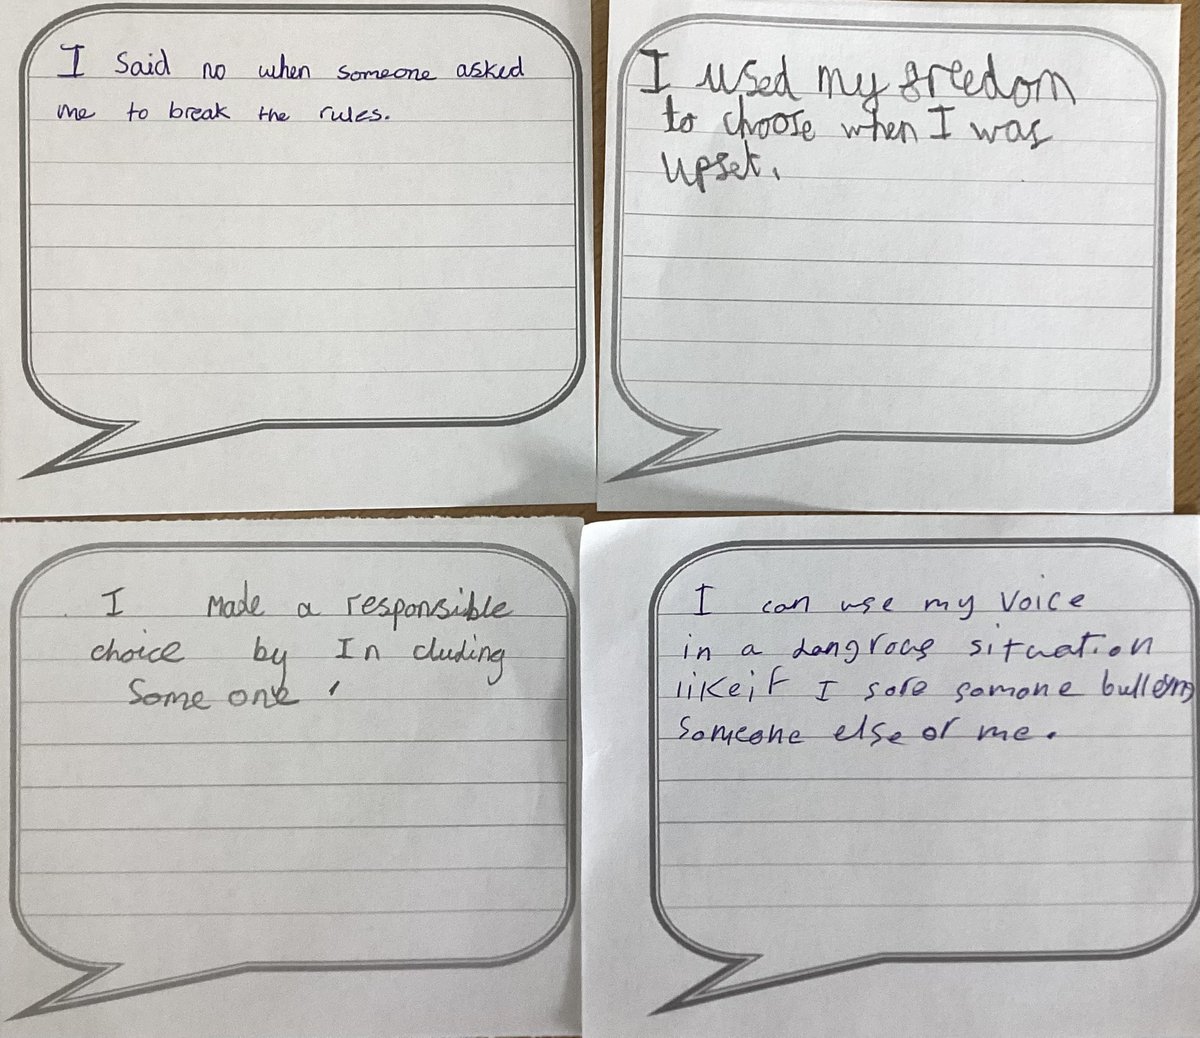 I said no when someone asked
me to break the rules.
I used my freedom
to choose when I was
upset.
I made a responsible
choice by In cluding
Some one
I can use my voice
in a dangroug situation
likeif I sore somone bulleying
Someone else or me.